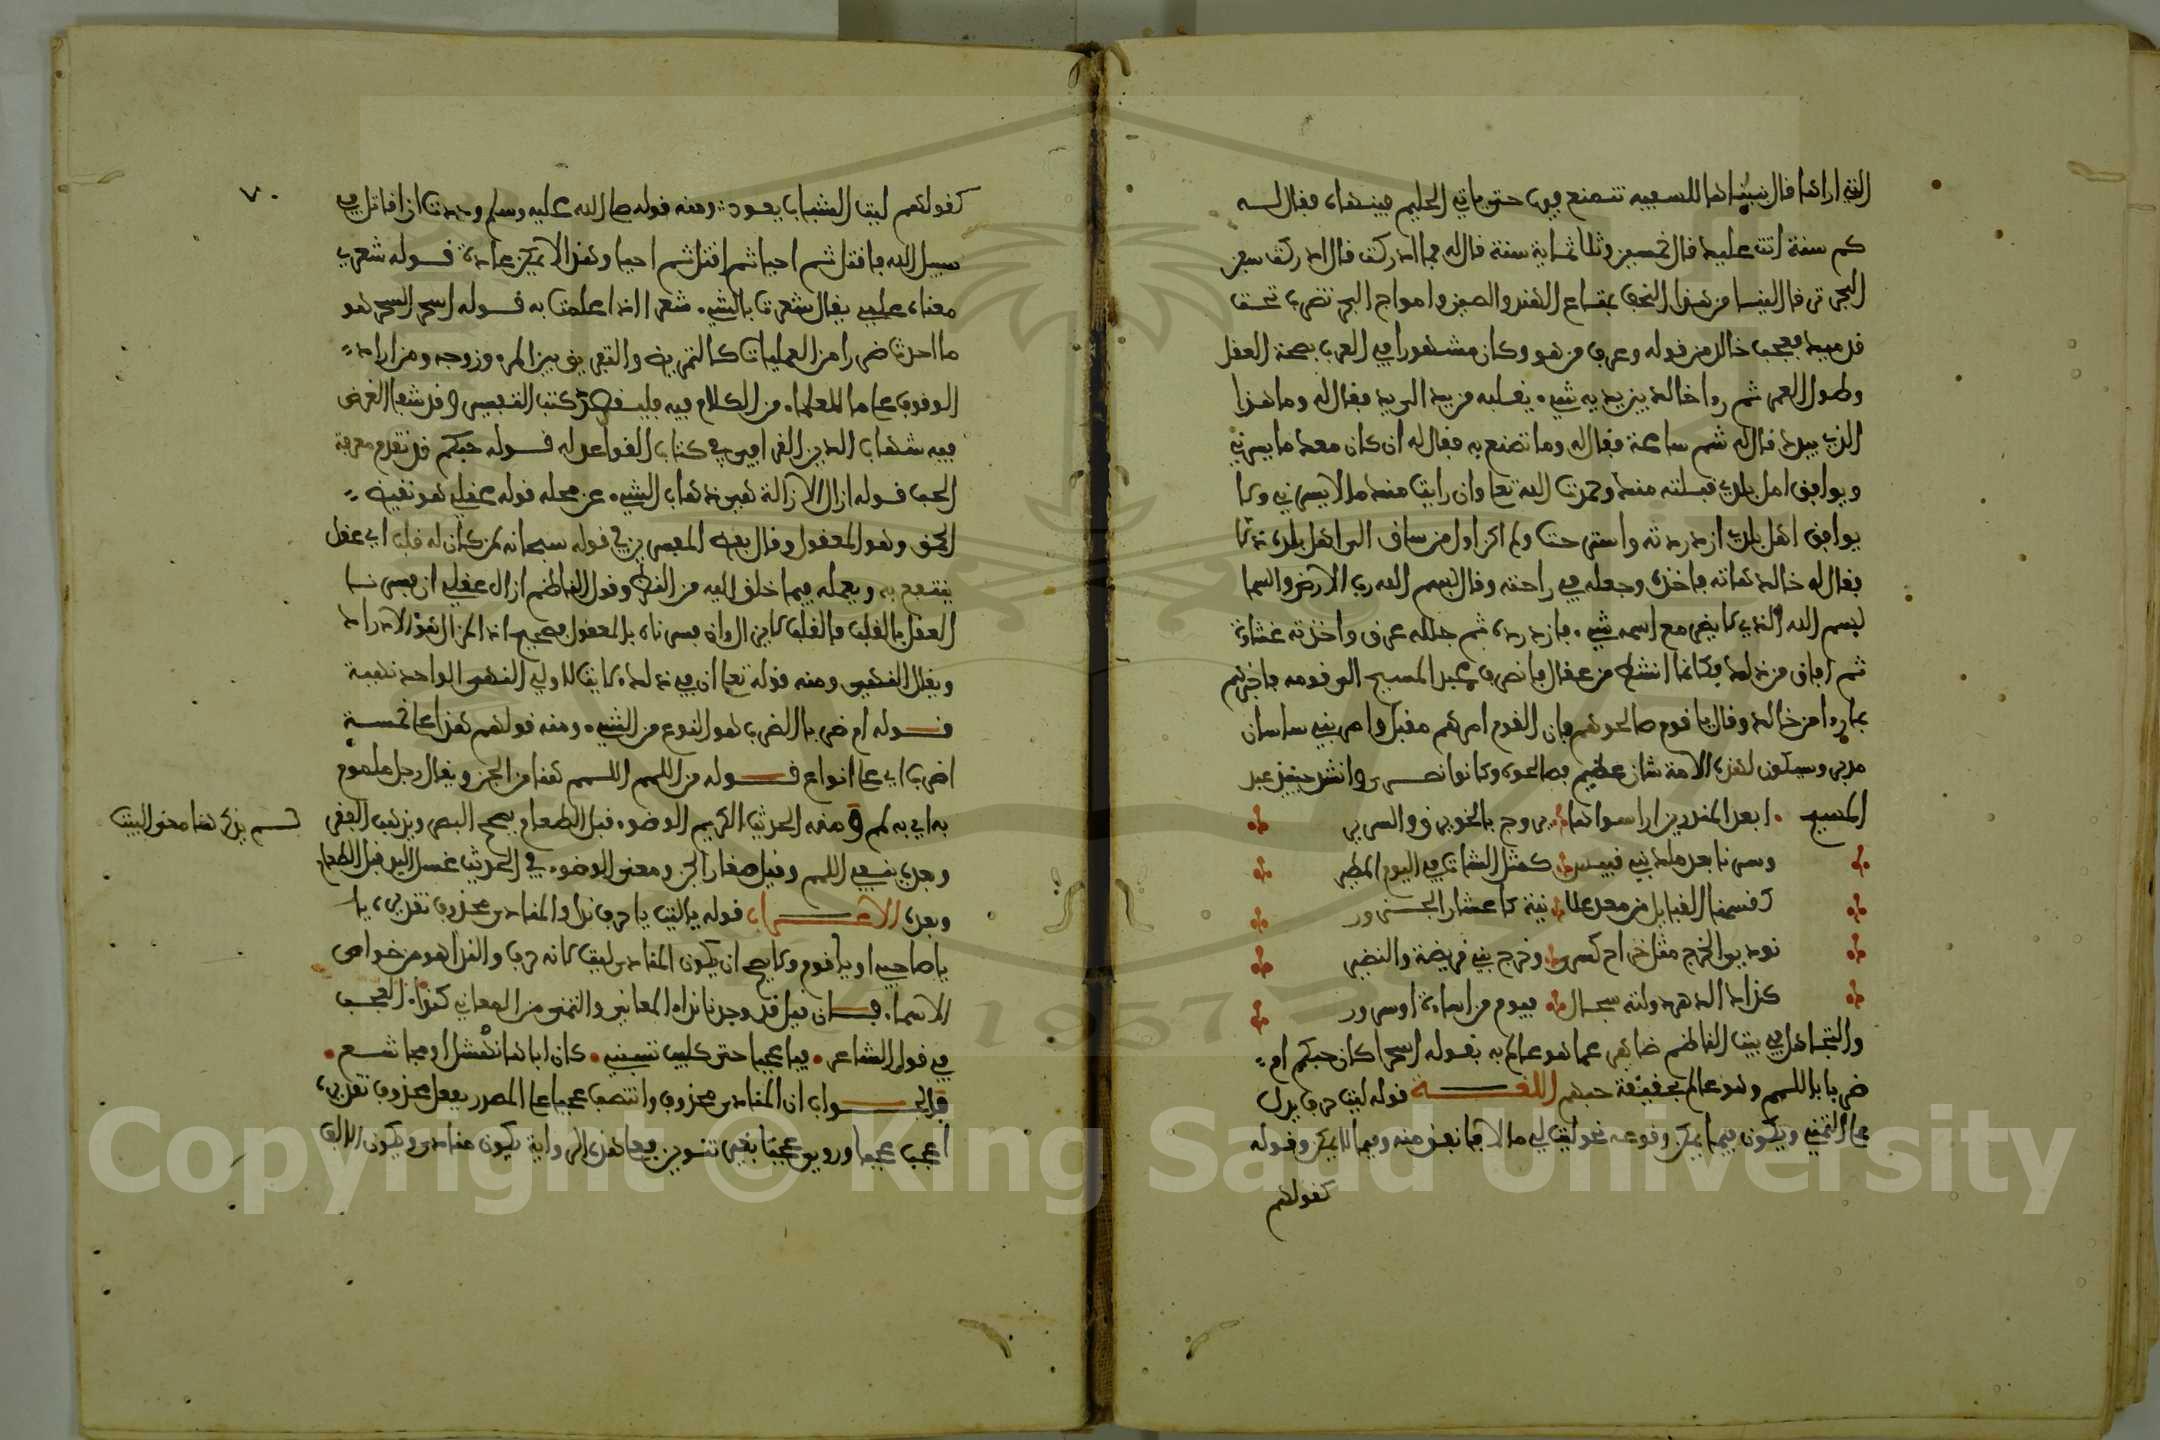 التي اراها قال بنيناها للسعيه تتمنع فيها حتى ياتي الحليم فينهاه فقال له
كم سنة اتت عليك قال خمسين وثلاثماية سنة قال له فما ادركت قال ادركت سفن
البحر ترفا الينا من هذا النجف بمتاع الهند والصين وامواج البحر تضرب تحت
قدميك فعجب خالد من قوله وعرف من هو وكان مشهورا في العرب بصحة العقل
وطول العمر ثم را خالد بن يديه شيء يقلبه من يد الى يد فقال له وما هذا
الذي بيدك قال له سم ساعة فقال له وما تصنع به فقال له ان كان معك ما يسرني
ويوافق امل بلدي قبلته منك وحمدت الله تعا وان رايت منك ما لا يسرني ولا
يوافق اهل بلدي ازدردته واسترحت ولم اكن اول من ساق الى اهل بلده ذلا
فقال له خالد هاته فاخذه وجعله في راحته وقال بسم الله رب الارض والسما
بسم الله الذي لا يضر مع اسمه شيء فازدرده ثم جلله عرق واخذته غشاة
ثم افاق من ذلك فكانما انشط من عقال فانصرف عبد المسيح الى قومه فاخبرهم
بما راه من خالد وقال يا قوم صالحوهم فان القوم امرهم مقبل وامر بني ساسان
مدبر وسيكون لهذه الامة شان عظيم فصالحوه وكانوا نصرى وانشد حينيذ عبد
المسيح ابعد المنذرين ارا سواما يروح بالخورنق والسرير
وصرنا بعد ملك بني قبيس كمثل الشات في اليوم المطير
تقسمنا القبايل من معد علانية كاعشار الجزور
نودي الخرج مثل خراج كسرى وخرج بني قريضة والنضير
كذاك الدهر دولته سجال فيوم من اساءة او سرور
والتجاهل في بيت الناظم ظاهر عما هو عالم به بقوله اسحرا كان حبكم ام
ضربا باللمم وهو عالم بحقيقة حبهم اللغة قوله ليت حرف يدل
على التمني ويكون فيما يمكن وقوعه نحو ليت لي مالا فانفق منه وفيما لا يمكن وقوله
كقولهم
٧٠
كقولهم ليت الشباب يعود ومنه قوله صلى الله عليه وسلم وددت ان اقاتل في
سبيل الله فاقتل ثم احيا ثم اقتل ثم احيا وهذا لا يمكن عادة قوله شعري
معناه علمي يقال شعرت بالشيء شعرا اذا علمت به قوله اسحرا السحر هو
ما احدث ضررا من العمليات كالتمريض والتفريق بين المرء وزوجه ومن اراد
الوقوف على ما للعلماء من الكلام فيه فلينظر كتب التفسير وقد شفا الغرض
فيه شهاب الدين القرافي في كتاب القواعد له قوله حبكم قد تقدم معرفة
الحب قوله ازال الازالة هي ذهاب الشيء عن محله قوله عقلي هو نقيض
الحمق وهو المعقول وقال بعض المفسرين في قوله سبحانه لمن كان له قلب اي عقل
ينتفع به ويعمله فيما خلق اليه من النظر وقول الناظم ازال عقلي ان فسرنا
العقل بالقلب فالقلب كاين الزوال وان فسرناه بالمعقول فصحيح اذ المزال هو الادراك
ويقال النهى ومنه قوله تعا ان في ذلك لايات لاولي النهى الواحد نهية
قوله ام ضربا الضرب هو النوع من الشيء ومنه قولهم هذا على خمسة
اضرب اي على انواع قوله من اللمم اللمم هنا من الجن ويقال رجل ملموم
به اي به لمم ومنه الحديث الكريم الوضوء قبل الطعام يصح البصر ويذهب الفقر
وبعده ينفي اللمم وقيل صغار الجن ومعنى الوضوء في الحديث غسل اليد قبل الطعام
وبعده الاعراب قوله يا ليت يا حرف ندا والمنادى محذوف تقديره يا
يا صاحبي او يا قوم ولا يصح ان يكون المنادى ليت لانه حرف والندا هو من خواص
الاسماء فان قيل قد وجدنا نداء المعاني والتمني من المعاني كنداء العجب
في قول الشاعر فيا عجبا حتى كليب تسبني كان اباها نهشل او مجاشع
فالجواب ان المنادى محذوف وانتصب عجبا على المصدر بفعل محذوف تقديره
اعجب عجبا وروي عجبا بغير تنوين فعلى هذه الرواية يكون منادى ويكون الالف
لم يذكر هنا معنى البيت